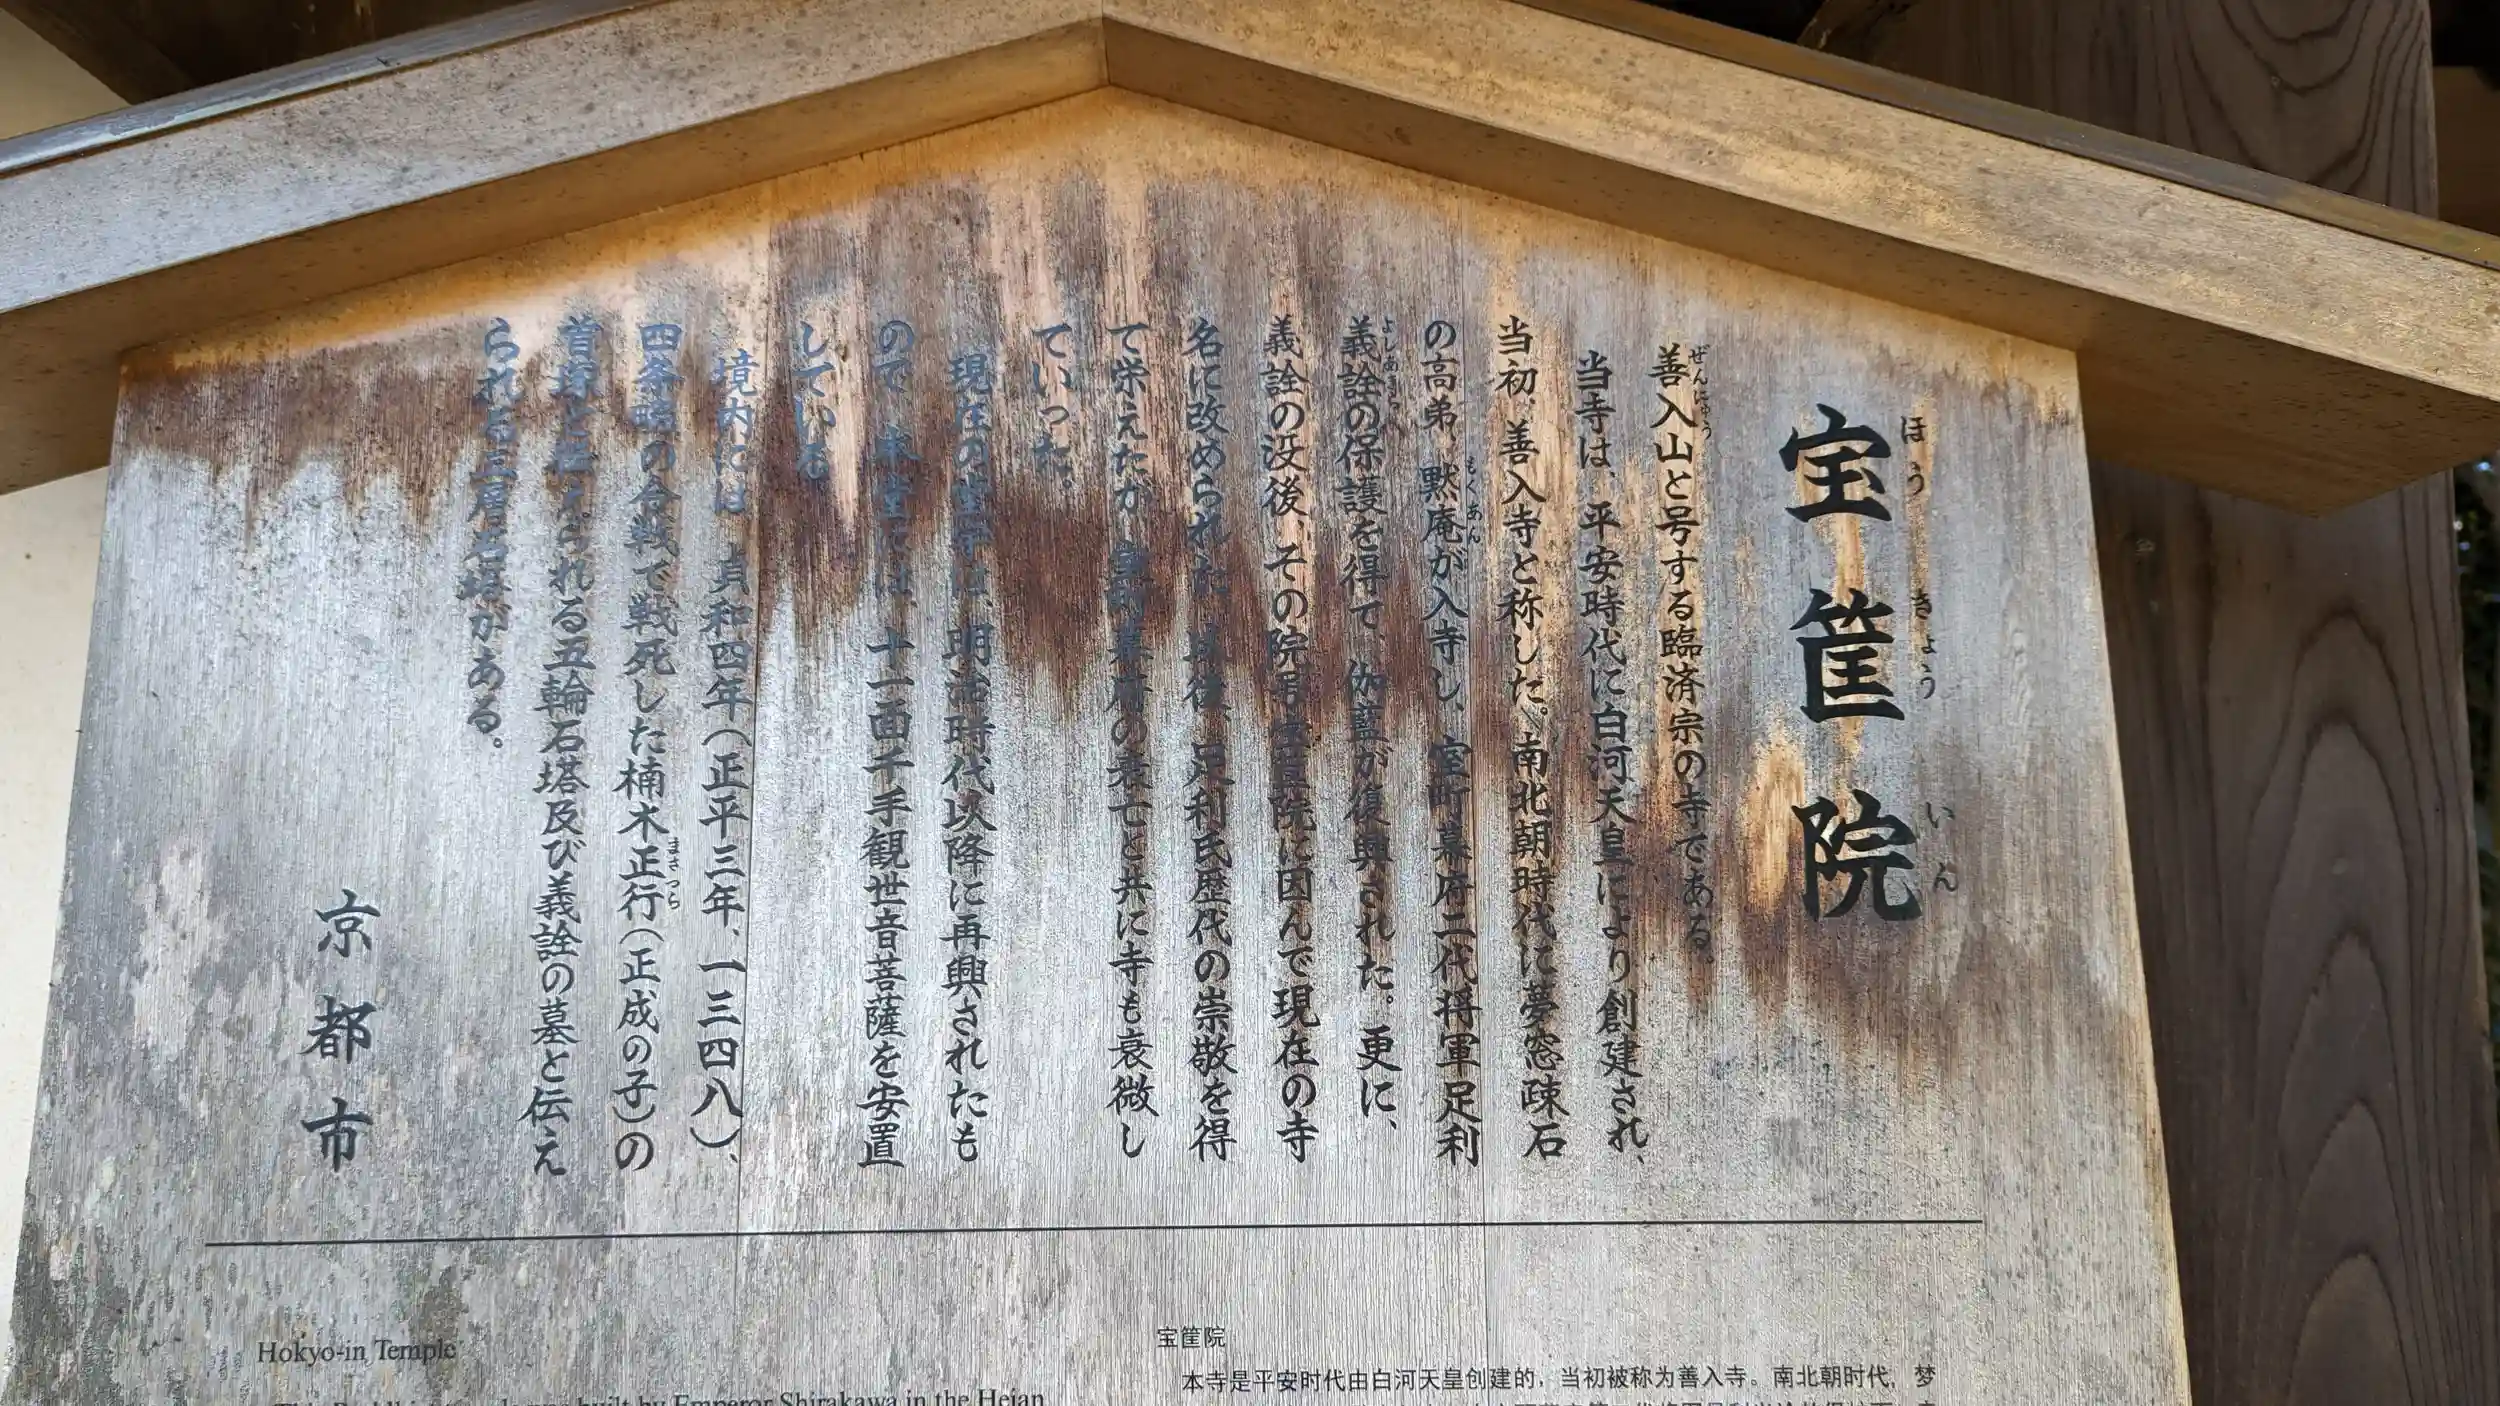 宝筐院
ほうきょういん
善入山と号する臨済宗の寺である。
ぜんにゅう
当寺は、平安時代に白河天皇により創建され、
当初、善入寺と称した。南北朝時代に夢窓疎石
の高弟、黙庵が入寺し、室町幕府二代将軍足利
もくあん
義詮の保護を得て、伽藍が復興された。更に、
よしあきら
義詮の没後、その院号宝筐院に因んで現在の寺
名に改められた。其後、足利氏歴代の崇敬を得
て栄えたが、室町幕府の衰亡と共に寺も衰微し
ていった。
現在の堂宇は、明治時代以降に再興されたも
ので、本堂には、十一面千手観世音菩薩を安置
している
境内には、貞和四年(正平三年、一三四八)、
四条畷の合戦で戦死した楠木正行(正成の子)の
まさつら
首塚と伝えられる五輪石塔及び義詮の墓と伝え
られる三層石塔がある。
京都市
Hokyo-in Temple
built by Emperor Shirakawa in the Heian
宝筐院
本寺是平安时代由白河天皇创建的，当初被称为善入寺。南北朝时代，梦